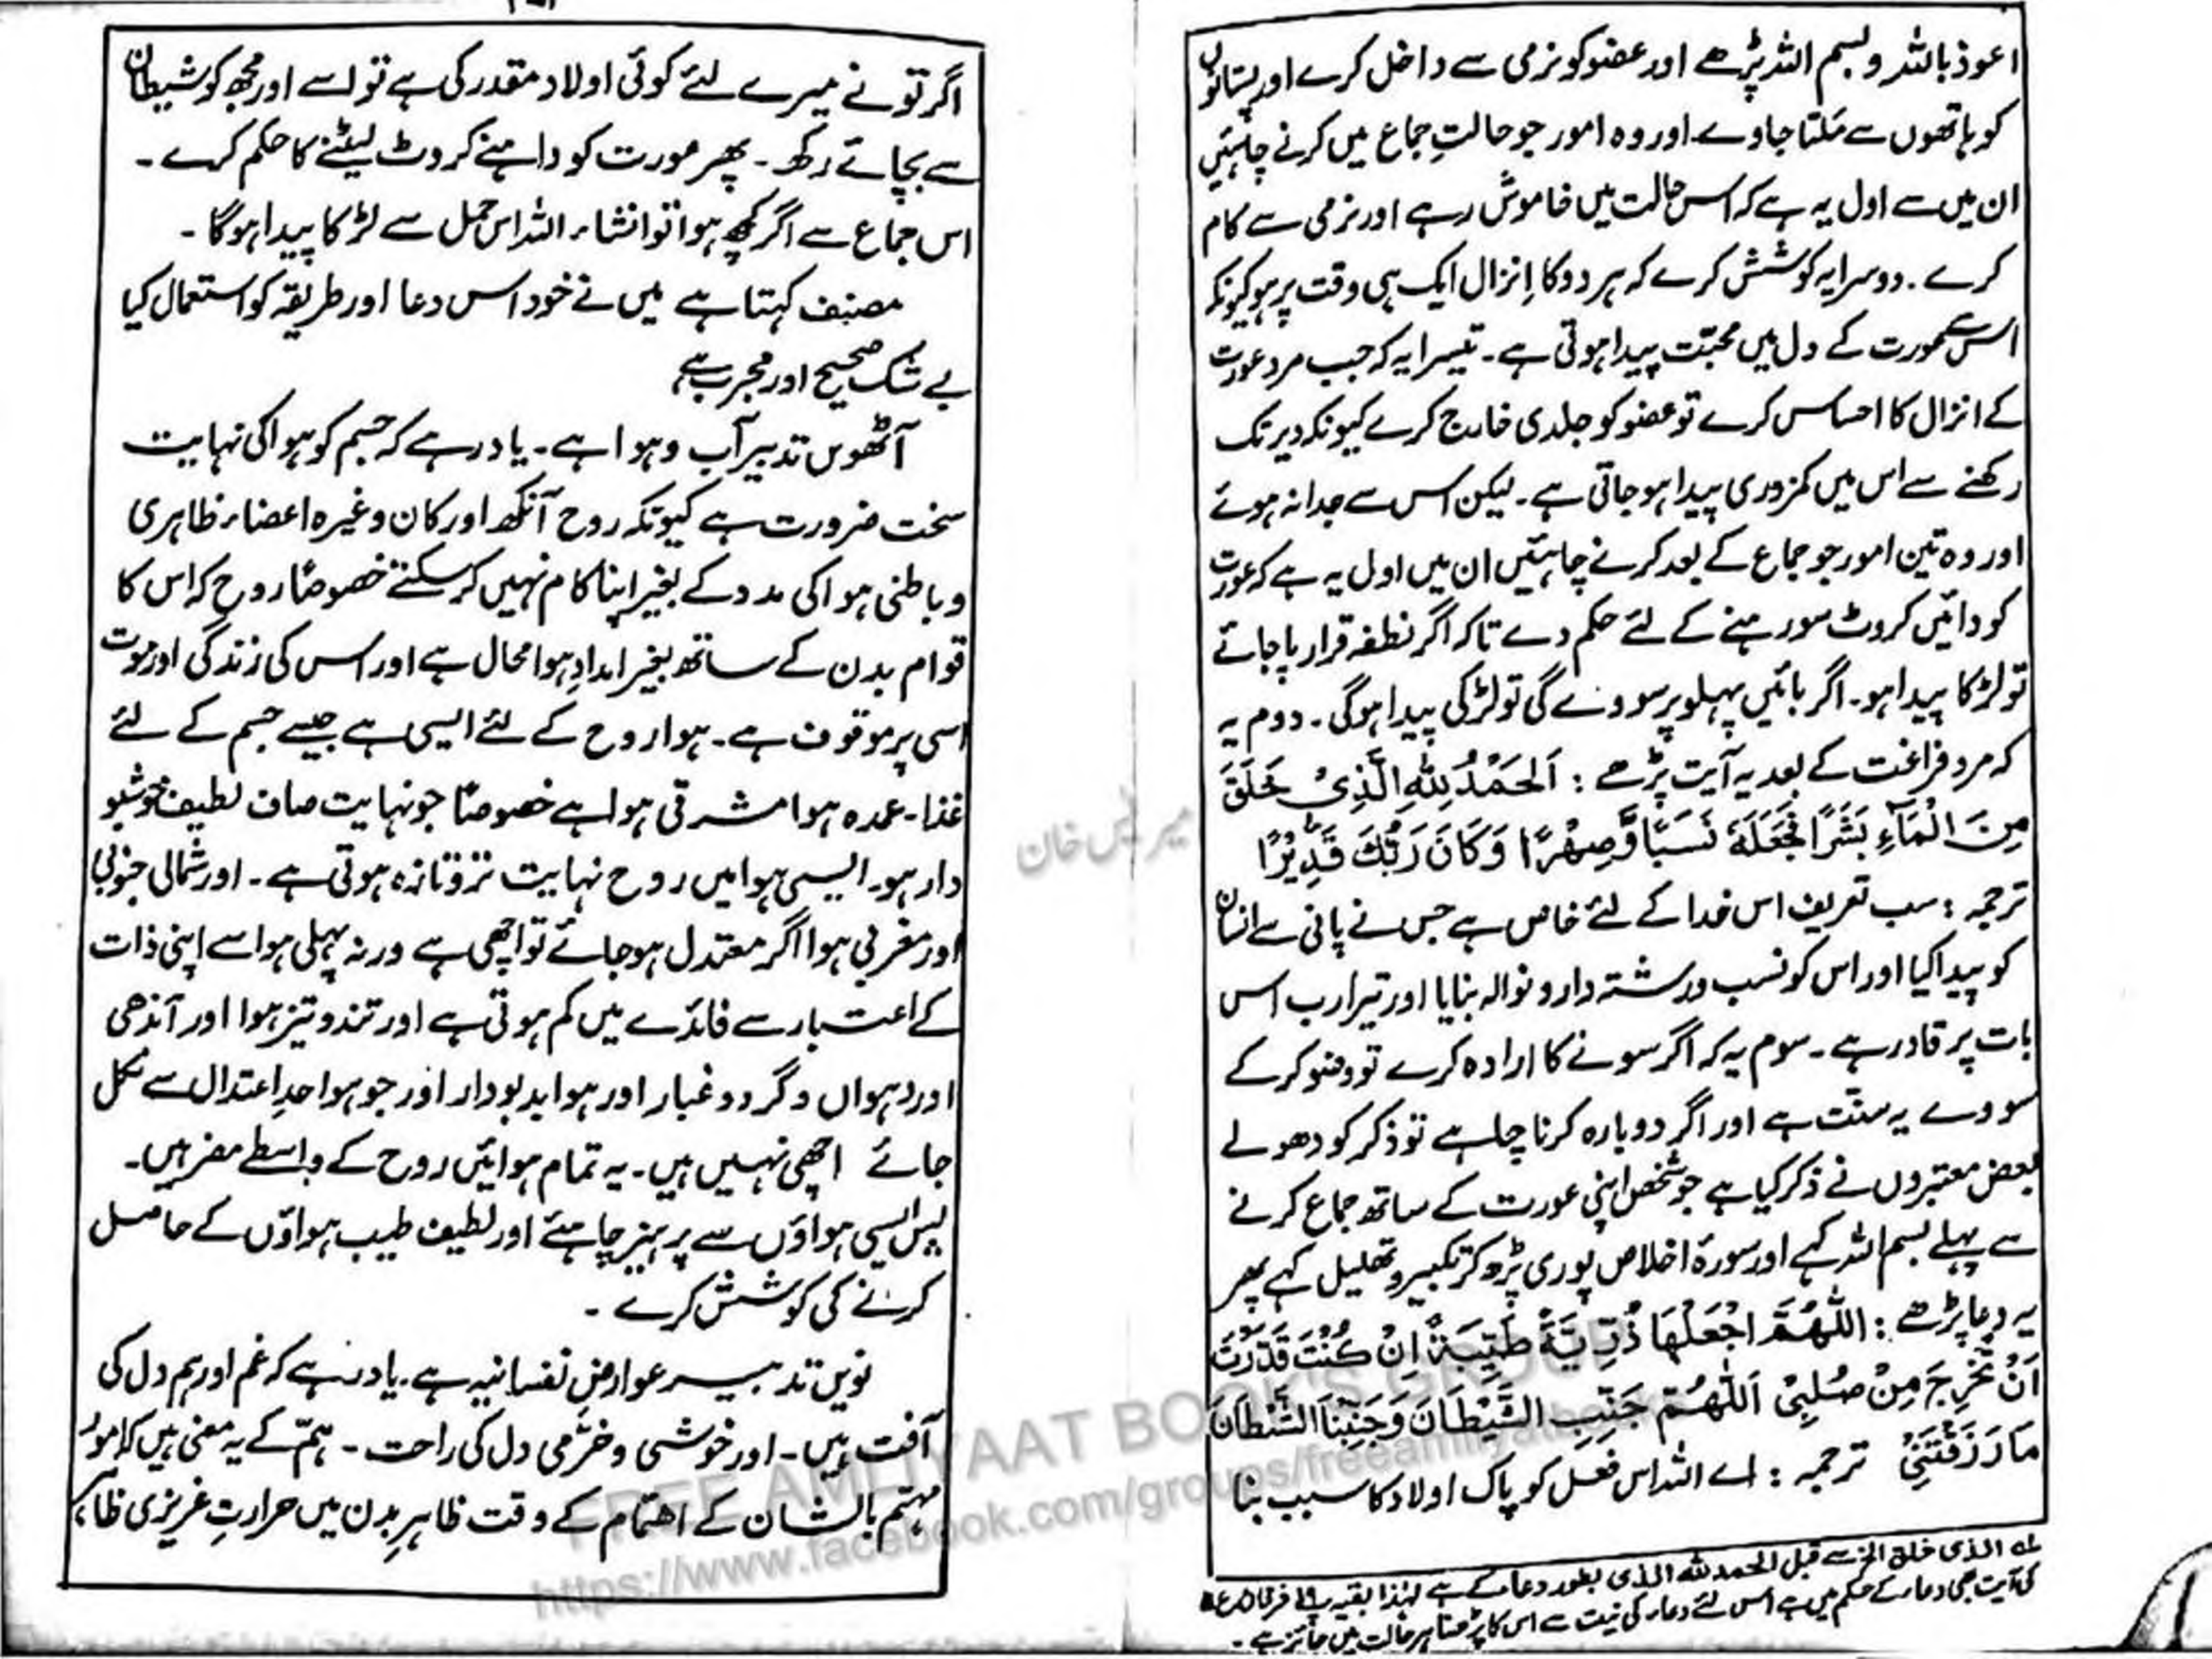 اعوذ باللہ و بسم اللہ پڑھے اور عضو کو نرمی سے داخل کرے اور پستانوں
کو ہاتھوں سے مَلتا جاوے۔ اور وہ امور جو حالتِ جماع میں کرنے چاہئیں
ان میں سے اول یہ ہے کہ اس حالت میں خاموش رہے اور نرمی سے کام
کرے۔ دوسرا یہ کوشش کرے کہ ہر دو کا اِنزال ایک ہی وقت پر ہو کیونکہ
اس سے عورت کے دل میں محبّت پیدا ہوتی ہے۔ تیسرا یہ کہ جب مرد عورت
کے انزال کا احساس کرے تو عضو کو جلدی خارج کرے کیونکہ دیر تک
رکھنے سے اس میں کمزوری پیدا ہو جاتی ہے۔ لیکن اس سے جدا نہ ہوئے
اور وہ تین امور جو جماع کے بعد کرنے چاہئیں ان میں اول یہ ہے کہ عورت
کو دائیں کروٹ سو رہنے کے لئے حکم دے تاکہ اگر نطفہ قرار پا جائے
تو لڑکا پیدا ہو۔ اگر بائیں پہلو پر سووے گی تو لڑکی پیدا ہوگی۔ دوم یہ
کہ مرد فراغت کے بعد یہ آیت پڑھے : اَلْحَمْدُ لِلّٰہِ الَّذِیْ خَلَقَ
مِنَ الْمَآءِ بَشَرًا فَجَعَلَهٗ نَسَبًا وَّصِهْرًا وَكَانَ رَبُّكَ قَدِيْرًا
ترجمہ : سب تعریف اس خدا کے لئے خاص ہے جس نے پانی سے انسان
کو پیدا کیا اور اس کو نسب و رشتہ دار و نوالہ بنایا اور تیرا رب اس
بات پر قادر ہے۔ سوم یہ کہ اگر سونے کا ارادہ کرے تو وضو کر کے
سووے یہ سنّت ہے اور اگر دوبارہ کرنا چاہے تو ذکر کو دھولے
بعض معتبروں نے ذکر کیا ہے جو شخص اپنی عورت کے ساتھ جماع کرنے
سے پہلے بسم اللہ کہے اور سورۂ اخلاص پوری پڑھ کر تکبیر و تھلیل کہے پھر
یہ دعا پڑھے : اَللّٰهُمَّ اجْعَلْهَا ذُرِّيَّةً طَيِّبَةً اِنْ كُنْتَ قَدَّرْتَ
اَنْ تُخْرِجَ مِنْ صُلْبِیْ اَللّٰهُمَّ جَنِّبِ الشَّيْطَانَ وَجَنِّبْنَا الشَّيْطَانَ
مَا رَزَقْتَنِیْ ترجمہ : اے اللہ اس فعل کو پاک اولاد کا سبب بنا
لہ الذی خلق الخ سے قبل الحمد للہ الذی بطور دعا کے ہے لہٰذا بقیہ پ ۱۹ فرقان ع
کی آیت بھی دعاء کے حکم میں ہے اس لئے دعاء کی نیت سے اس کا پڑھنا ہر حالت میں جائز ہے۔
اگر تو نے میرے لئے کوئی اولاد مقدر کی ہے تو اسے اور مجھ کو شیطان
سے بچائے رکھ۔ پھر عورت کو داہنے کروٹ لیٹنے کا حکم کرے۔
اس جماع سے اگر کچھ ہوا تو انشاء اللہ اس حمل سے لڑکا پیدا ہوگا۔
مصنف کہتا ہے میں نے خود اس دعا اور طریقہ کو استعمال کیا
بے شک صحیح اور مجرب ہے
آٹھویں تدبیر آب و ہوا ہے۔ یاد رہے کہ جسم کو ہوا کی نہایت
سخت ضرورت ہے کیونکہ روح آنکھ اور کان وغیرہ اعضاء ظاہری
و باطنی ہوا کی مدد کے بغیر اپنا کام نہیں کر سکتے خصوصًا روح کہ اس کا
قوام بدن کے ساتھ بغیر امدادِ ہوا محال ہے اور اس کی زندگی اور موت
اسی پر موقوف ہے۔ ہوا روح کے لئے ایسی ہے جیسے جسم کے لئے
غذا۔ عمدہ ہوا مشرقی ہوا ہے خصوصًا جو نہایت صاف لطیف خوشبو
دار ہو۔ ایسی ہوا میں روح نہایت تروتازہ ہوتی ہے۔ اور شمالی جنوبی
اور مغربی ہوا اگر معتدل ہو جائے تو اچھی ہے ورنہ پہلی ہوا سے اپنی ذات
کے اعتبار سے فائدے میں کم ہوتی ہے اور تند و تیز ہوا اور آندھی
اور دہواں و گرد و غبار اور ہوا بدبودار اور جو ہوا حدِ اعتدال سے نکل
جائے اچھی نہیں ہیں۔ یہ تمام ہوائیں روح کے واسطے مضر ہیں۔
پس ایسی ہواؤں سے پرہیز چاہئے اور لطیف طیب ہواؤں کے حاصل
کرنے کی کوشش کرے۔
نویں تدبیر عوارضِ نفسانیہ ہے۔ یاد رہے کہ غم اور ہم دل کی
آفت ہیں۔ اور خوشی و خرّمی دل کی راحت۔ ہمّ کے یہ معنی ہیں کہ امور
مہتم بالشان کے اھتمام کے وقت ظاہرِ بدن میں حرارتِ غریزی ظاہر
میر خان
FREE AMLIYAAT BOOK'S GROUP
https://www.facebook.com/groups/freeamliyatbooks